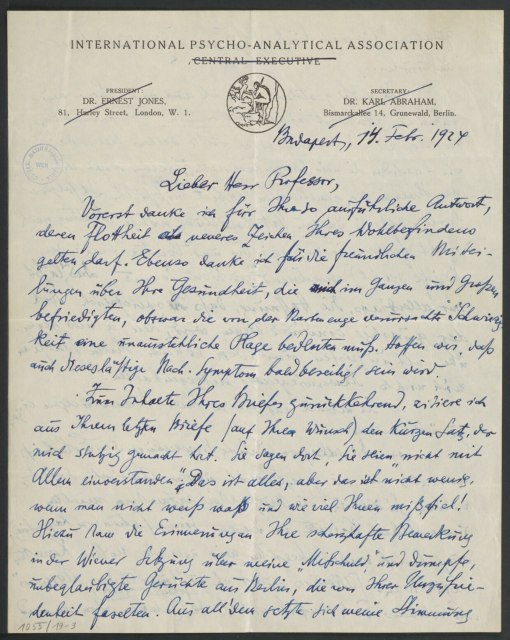 INTERNATIONAL PSYCHO-ANALYTICAL ASSOCIATION
CENTRAL EXECUTIVE
PRESIDENT:
DR. ERNEST JONES,
81, Harley Street, London, W. 1.
SECRETARY:
DR. KARL ABRAHAM,
Bismarckallee 14, Grunewald, Berlin.
Budapest, 14. Febr. 1924
Lieber Herr Professor,
Vorerst danke ich für Ihre so ausführliche Antwort,
deren Flottheit als neueres Zeichen Ihres Wohlbefindens
gelten darf. Ebenso danke ich für die freundlichen Mittei-
lungen über Ihre Gesundheit, die mich im Ganzen und Großen
befriedigten, obzwar die von der verursachte Schwierig
keit eine unausstehliche Plage bedeuten muß. Hoffen wir, daß
auch dieses lästige Nach-Symptom bald beseitigt sein wird.
Zum Inhalte Ihres Briefes zurückkehrend, zitiere ich
aus Ihrem letzten Briefe (auf Ihren Wunsch) den kurzen Satz, der
mich stutzig gemacht hat. Sie sagen dort, Sie seien "nicht mit
Allem einverstanden". Das ist alles, aber das ist nicht wenig,
wenn man nicht weiß was und wie viel Ihnen mißfiel!
Hiezu kam die Erinnerung an Ihre scherzhafte Bemerkung
in der Wiener Sitzung über meine "Mitschuld" und dumpfe,
unbeglaubigte Gerüchte aus Berlin, die von Ihrer Unzufrie-
denheit faselten. Aus all dem setzte sich meine Stimmung
1055/19-3